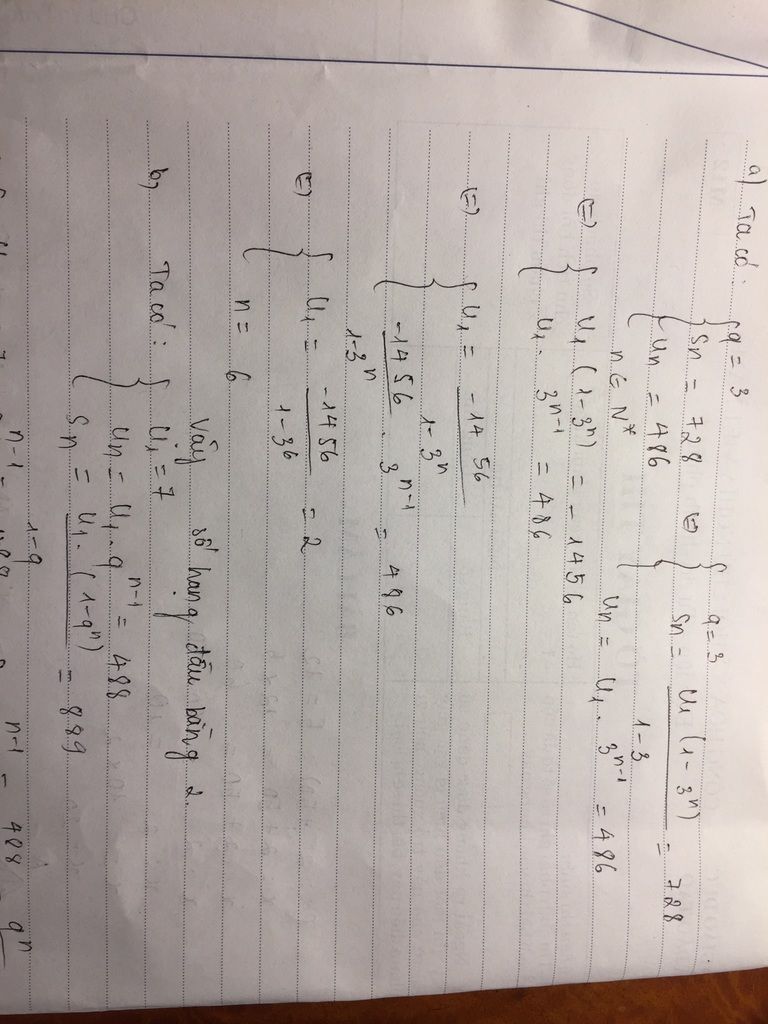 a) Ta có: { q = 3
Sn = 728
un = 486
n ∈ N*
(=) { q = 3
Sn = u1 (1 - 3^n) / (1 - 3) = 728
un = u1 . 3^(n-1) = 486
(=) { u1 (1 - 3^n) = - 1456
u1 . 3^(n-1) = 486
(=) { u1 = -1456 / (1 - 3^n)
-1456 / (1 - 3^n) . 3^(n-1) = 486
(=) { u1 = -1456 / (1 - 3^6) = 2
n = 6
Vậy số hạng đầu bằng 2.
b) Ta có: { u1 = 7
un = u1 . q^(n-1) = 488
Sn = u1 . (1 - q^n) / (1 - q) = 889